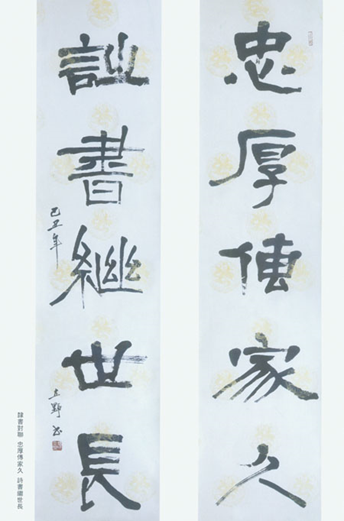 忠厚傳家久
詩書繼世長
己丑年
隸書對聯 忠厚傳家久 詩書繼世長